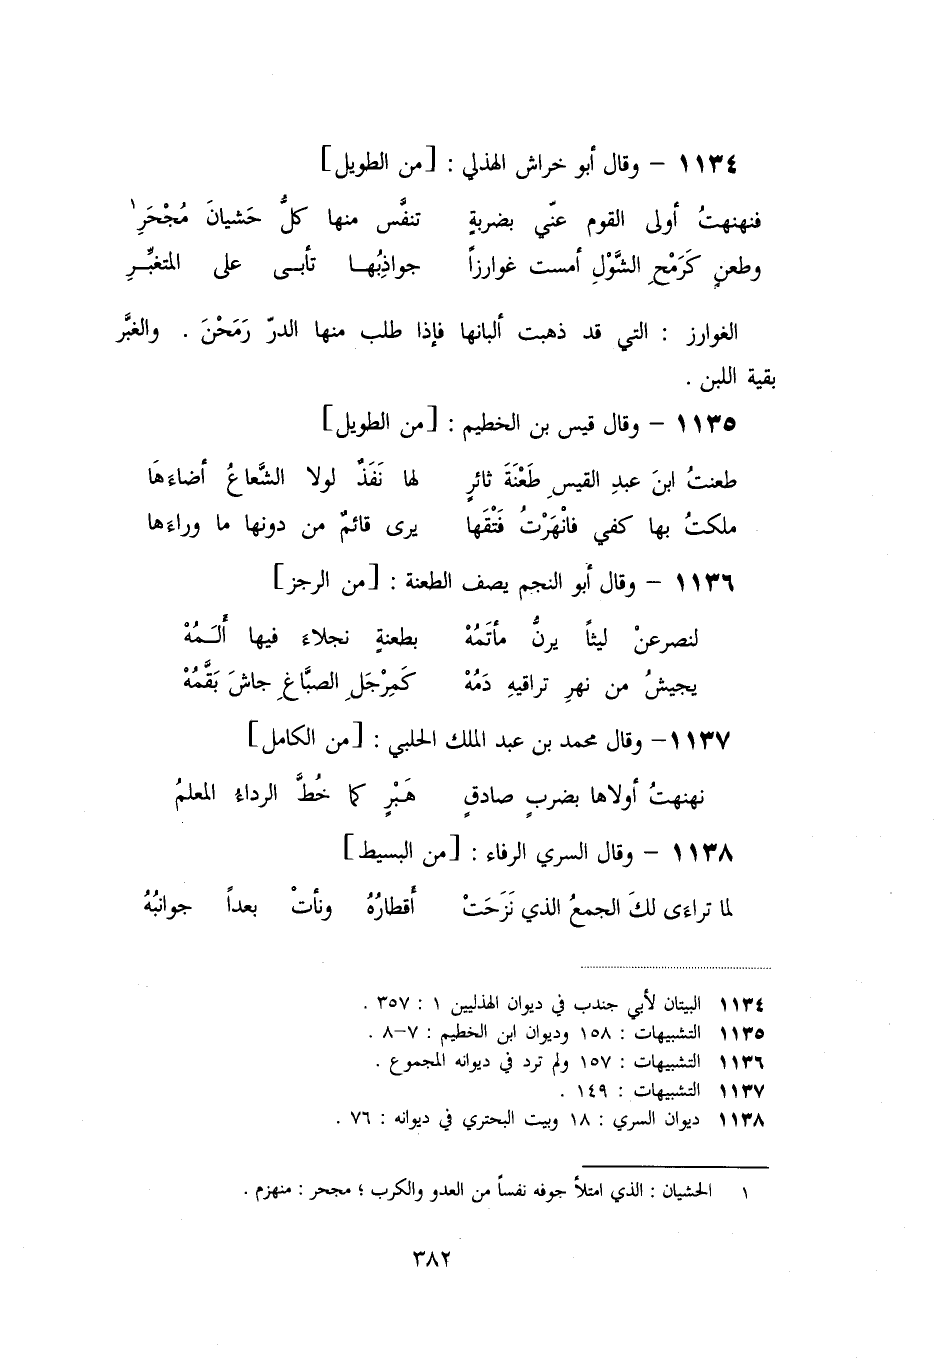 ١١٣٤ – وقال أبو خراش الهذلي : [من الطويل]
فنهنهتُ أولى القوم عنّي بضربةٍ تنفَّس منها كلُّ حَشيانَ مُجْحَرِ١
وطعنٍ كَرَمْحِ الشَّوْلِ أمست غوارزاً جواذِبُهـا تأبـى على المتغبِّـرِ
الغوارز : التي قد ذهبت ألبانها فإذا طلب منها الدرّ رَمَحْنَ . والغبَّر
بقية اللبن .
١١٣٥ – وقال قيس بن الخطيم : [من الطويل]
طعنتُ ابنَ عبدِ القيسِ طَعْنَةَ ثائرٍ لها نَفَذٌ لولا الشَّعاعُ أضاءَهَا
ملكتُ بها كفي فانْهَرْتُ فَتْقَها يرى قائمٌ من دونها ما وراءَها
١١٣٦ – وقال أبو النجم يصف الطعنة : [من الرجز]
لنصرعنْ ليثاً يرنُّ مأتَمُهْ بطعنةٍ نجلاءَ فيها أَلَـمُهْ
يجيشُ من نهرِ تراقيهِ دَمُهْ كَمِرْجَلِ الصبَّاغِ جاشَ بَقَّمُهْ
١١٣٧– وقال محمد بن عبد الملك الحلبي : [من الكامل]
نهنهتُ أولاها بضربٍ صادقٍ هَـبْرٍ كما خُطَّ الرداءُ المعلمُ
١١٣٨ – وقال السري الرفاء : [من البسيط]
لما تراءَى لكَ الجمعُ الذي نَزَحَتْ أَقطارُهُ ونأتْ بعداً جوانبُهُ
١١٣٤ البيتان لأبي جندب في ديوان الهذليين ١ : ٣٥٧ .
١١٣٥ التشبيهات : ١٥٨ وديوان ابن الخطيم : ٧–٨ .
١١٣٦ التشبيهات : ١٥٧ ولم ترد في ديوانه المجموع .
١١٣٧ التشبيهات : ١٤٩ .
١١٣٨ ديوان السري : ١٨ وبيت البحتري في ديوانه : ٧٦ .
١ الحشيان : الذي امتلأ جوفه نفساً من العدو والكرب ؛ مجحر : منهزم .
٣٨٢